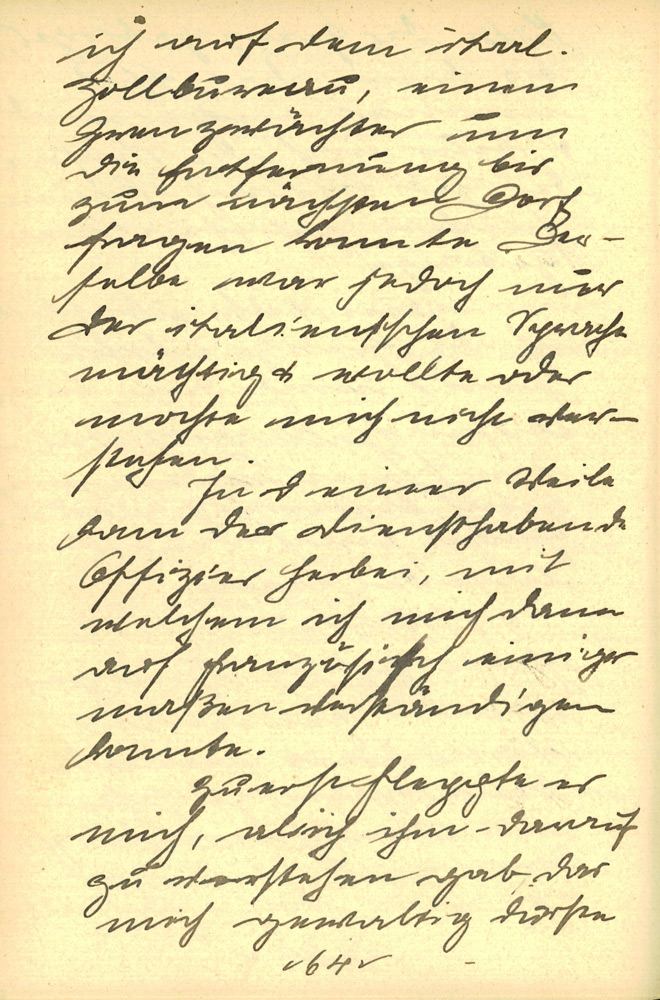 ich auf dem ital.
Zollbureau, einen
Grenzwächter um
die Entfernung bis
zum nächsten Dorf
fragen konnte Der-
selbe war jedoch nur
der italienischen Sprache
mächtig & wollte oder
mochte mich nicht ver-
stehen.
In einer Weile
kam der diensthabende
Offizier herbei, mit
welchem ich mich dann
auf französisch einiger
maßen verständigen
konnte.
Zuerst schleppte er
mich, als ich ihm darauf
zu verstehen gab, das
mich gewaltig dürste
64